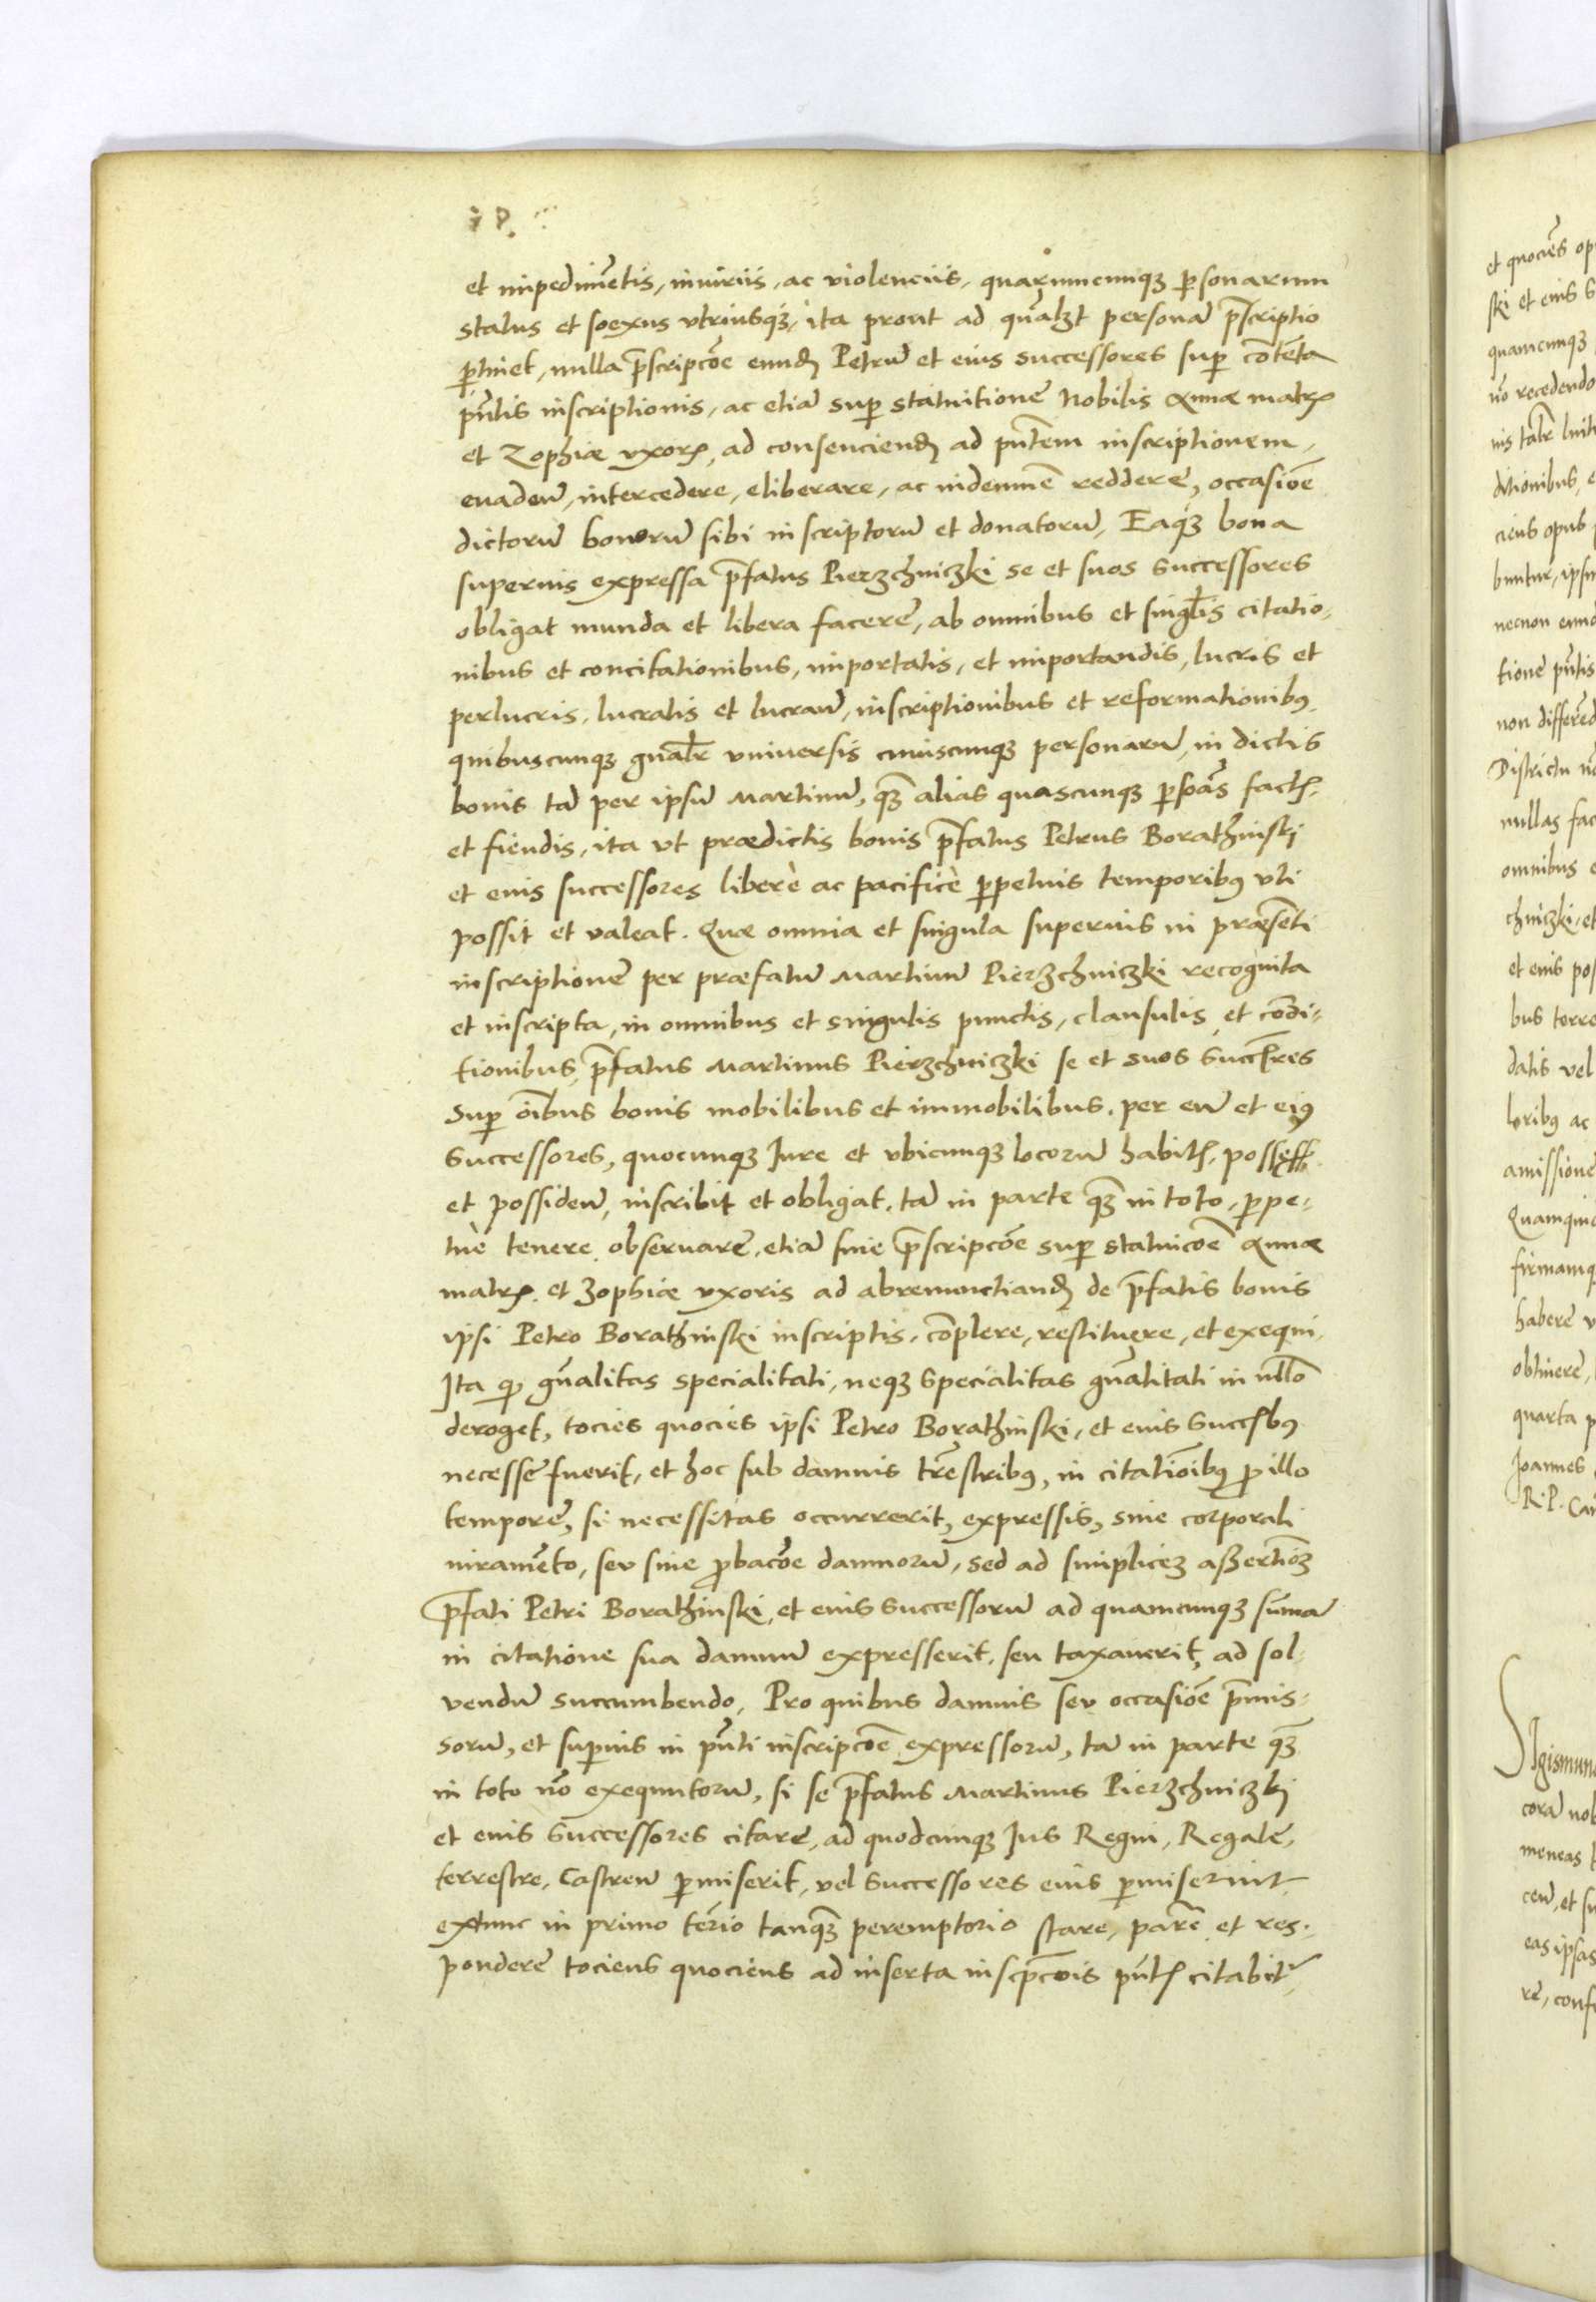 et impedimētis, iniuriis, ac violenciis, quarumcunqꝫ ꝑsonarum
status et soexus vtriusqꝫ, ita prout ad quālꝫt personā p̄scriptio
ꝑtinet, nulla p̄scripcōe eundꝫ Petrū et eius successores suꝑ cōtēta
pn̄tis inscriptionis, ac etiā suꝑ statuitionē Nobilis Annæ matrꝭ
et Zophiæ vxorꝭ, ad consenciendꝫ ad pn̄tem inscriptionem,
euadeñ, intercedere, eliberare, ac indemnē reddere, occasiōe
dictorū bonorū sibi inscriptorū et donatorū, Eaqꝫ bona
superius expressa p̄fatus Pierzchniczki se et suos successores
obligat munda et libera facere, ab omnibus et singl̄is citatio-
nibus et concitationibus, importatis, et importandis, lucris et
perlucris, lucratis et lucrañ, inscriptionibus et reformationibꝰ
quibuscunqꝫ gn̄alr̄ vniuersis cuiuscunqꝫ personarū, in dictis
bonis tā per ipsū Martinū, qꝫ̄ alias quascunqꝫ ꝑsōas factꝭ
et fiendis, ita vt prædictis bonis p̄fatus Petrus Borathinskj
et eius successores liberè ac pacificè ꝑpetuis temporibꝰ vti
possit et valeat. Quæ omnia et singula superius in præsēti
inscriptione per præfatū Martinū Pierzchniczki recognita
et inscripta, in omnibus et singulis punctis, clausulis et cōdi-
tionibus, p̄fatus Martinus Pierzchniczki se et suos succr̄es
Suꝑ oībus bonis mobilibus et immobilibus, per eū et eiꝰ
successores, quocunqꝫ Iure et vbicunqꝫ locorū habitꝭ, possess
et possideñ, inscribit et obligat, tā in parte qꝫ̄ in toto, ꝑpe-
tuè tenere obseruare, etiā sine p̄scripcōe suꝑ statuicōe Annæ
matrꝭ et Zophiæ vxoris ad abrenunctiandꝫ de p̄fatis bonis
ipsi Petro Borathinski inscriptis, cōplere, restituere, et exequi,
Ita ꝙ gn̄alitas specialitati, neqꝫ specialitas gn̄alitati in nullo
deroget, tocies quocies ipsi Petro Borathinski, et eius succꝭbꝰ
necesse fuerit, et hoc sub damnis tr̄estribꝰ, in citatiōibꝰ ꝓ illo
tempore, si necessitas occurrerit, expressis, sine corporali
iuramēto, seu sine ꝓbacōe damnorū, sed ad simplicēꝫ assertiōꝫ
p̄fati Petri Borathinski, et eius successorū ad quamcunqꝫ sūmā
in citatione sua damnū expresserit, seu taxauerit, ad sol-
vendū succumbendo, Pro quibus damnis seu occasiōe p̄mis-
sorū, et suꝑius in pn̄ti inscripcōe expressorū, tā in parte qꝫ̄
in toto nō exequutorū, si se p̄fatus Martinus Pierzchniczki
et eius successores citare, ad quodcunqꝫ Ius Regni, Regale,
terrestre, Castreñ ꝑmiserit, vel successores eius ꝑmiserint
extunc in primo termīo tanqꝫ̄ peremptorio stare, parē et res-
pondere tociens quociens ad inserta inscp̄cōis pn̄tꝭ citabit̄